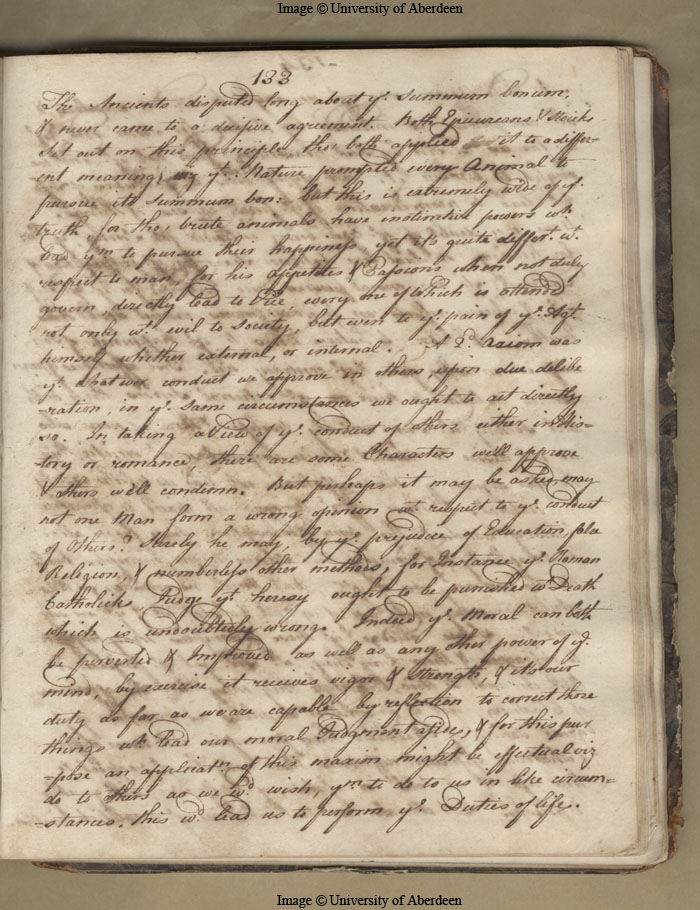 Image © University of Aberdeen
133
The Ancients disputed long about yͤ. Summum bonum,
& never came to a decisive agreement. Both Epicureans & Stoicks
set out on this principle, tho' both applied it to a differ-
ent meaning, yͤ. Nature prompted every Animal to
pursue its Summum bon: but this is extremely wide of yͤ.
truth for tho' brute animals have instinctive powers wͨʰ
lead yͫ to pursue their happiness, yet it's quite differͭ. wͭ.
respect to man, for his appetites & Passions when not duly
govern, directly lead to Vice, every one of which is attend
not only wͭ. evil to Society, but even to yͤ. pain of yͤ. Agͭ.
himself whether external, or internal. A 2ͩ. Axiom was
yͭ. whatever conduct we approve in others, upon due delibe
-ration, in yͤ. same circumstances we ought to act directly
so. In taking a View of yͤ. conduct of others either in His-
tory or romance, there are some Characters we'll approve
& others we'll condemn. But perhaps it may be asked, may
not one Man form a wrong opinion wͭ. respect to yͤ. conduct
of Others? Surely he may, by yͤ. prejudice of Education, false
Religion, & numberless other methods, for Instance yͤ. Roman
Catholicks Judge yͭ. heresy ought to be punished wͭ Death
which is undoubtedly wrong. Indeed yͤ. Moral can both
be perverted & Improved as well as any other power of yͤ.
mind, by exercise it receives vigor & strength, & it's our
duty as far as we are capable by reflection to correct those
things wͨʰ. lead our moral Judgment aside, & for this pur
-pose an applicatͫ. of this maxim might be effectual viz
do to others as we wͩ. wish, yͫ to do to us in like circum=
=stances. this wͩ. lead us to perform yͤ. Duties of life.
Image © University of Aberdeen